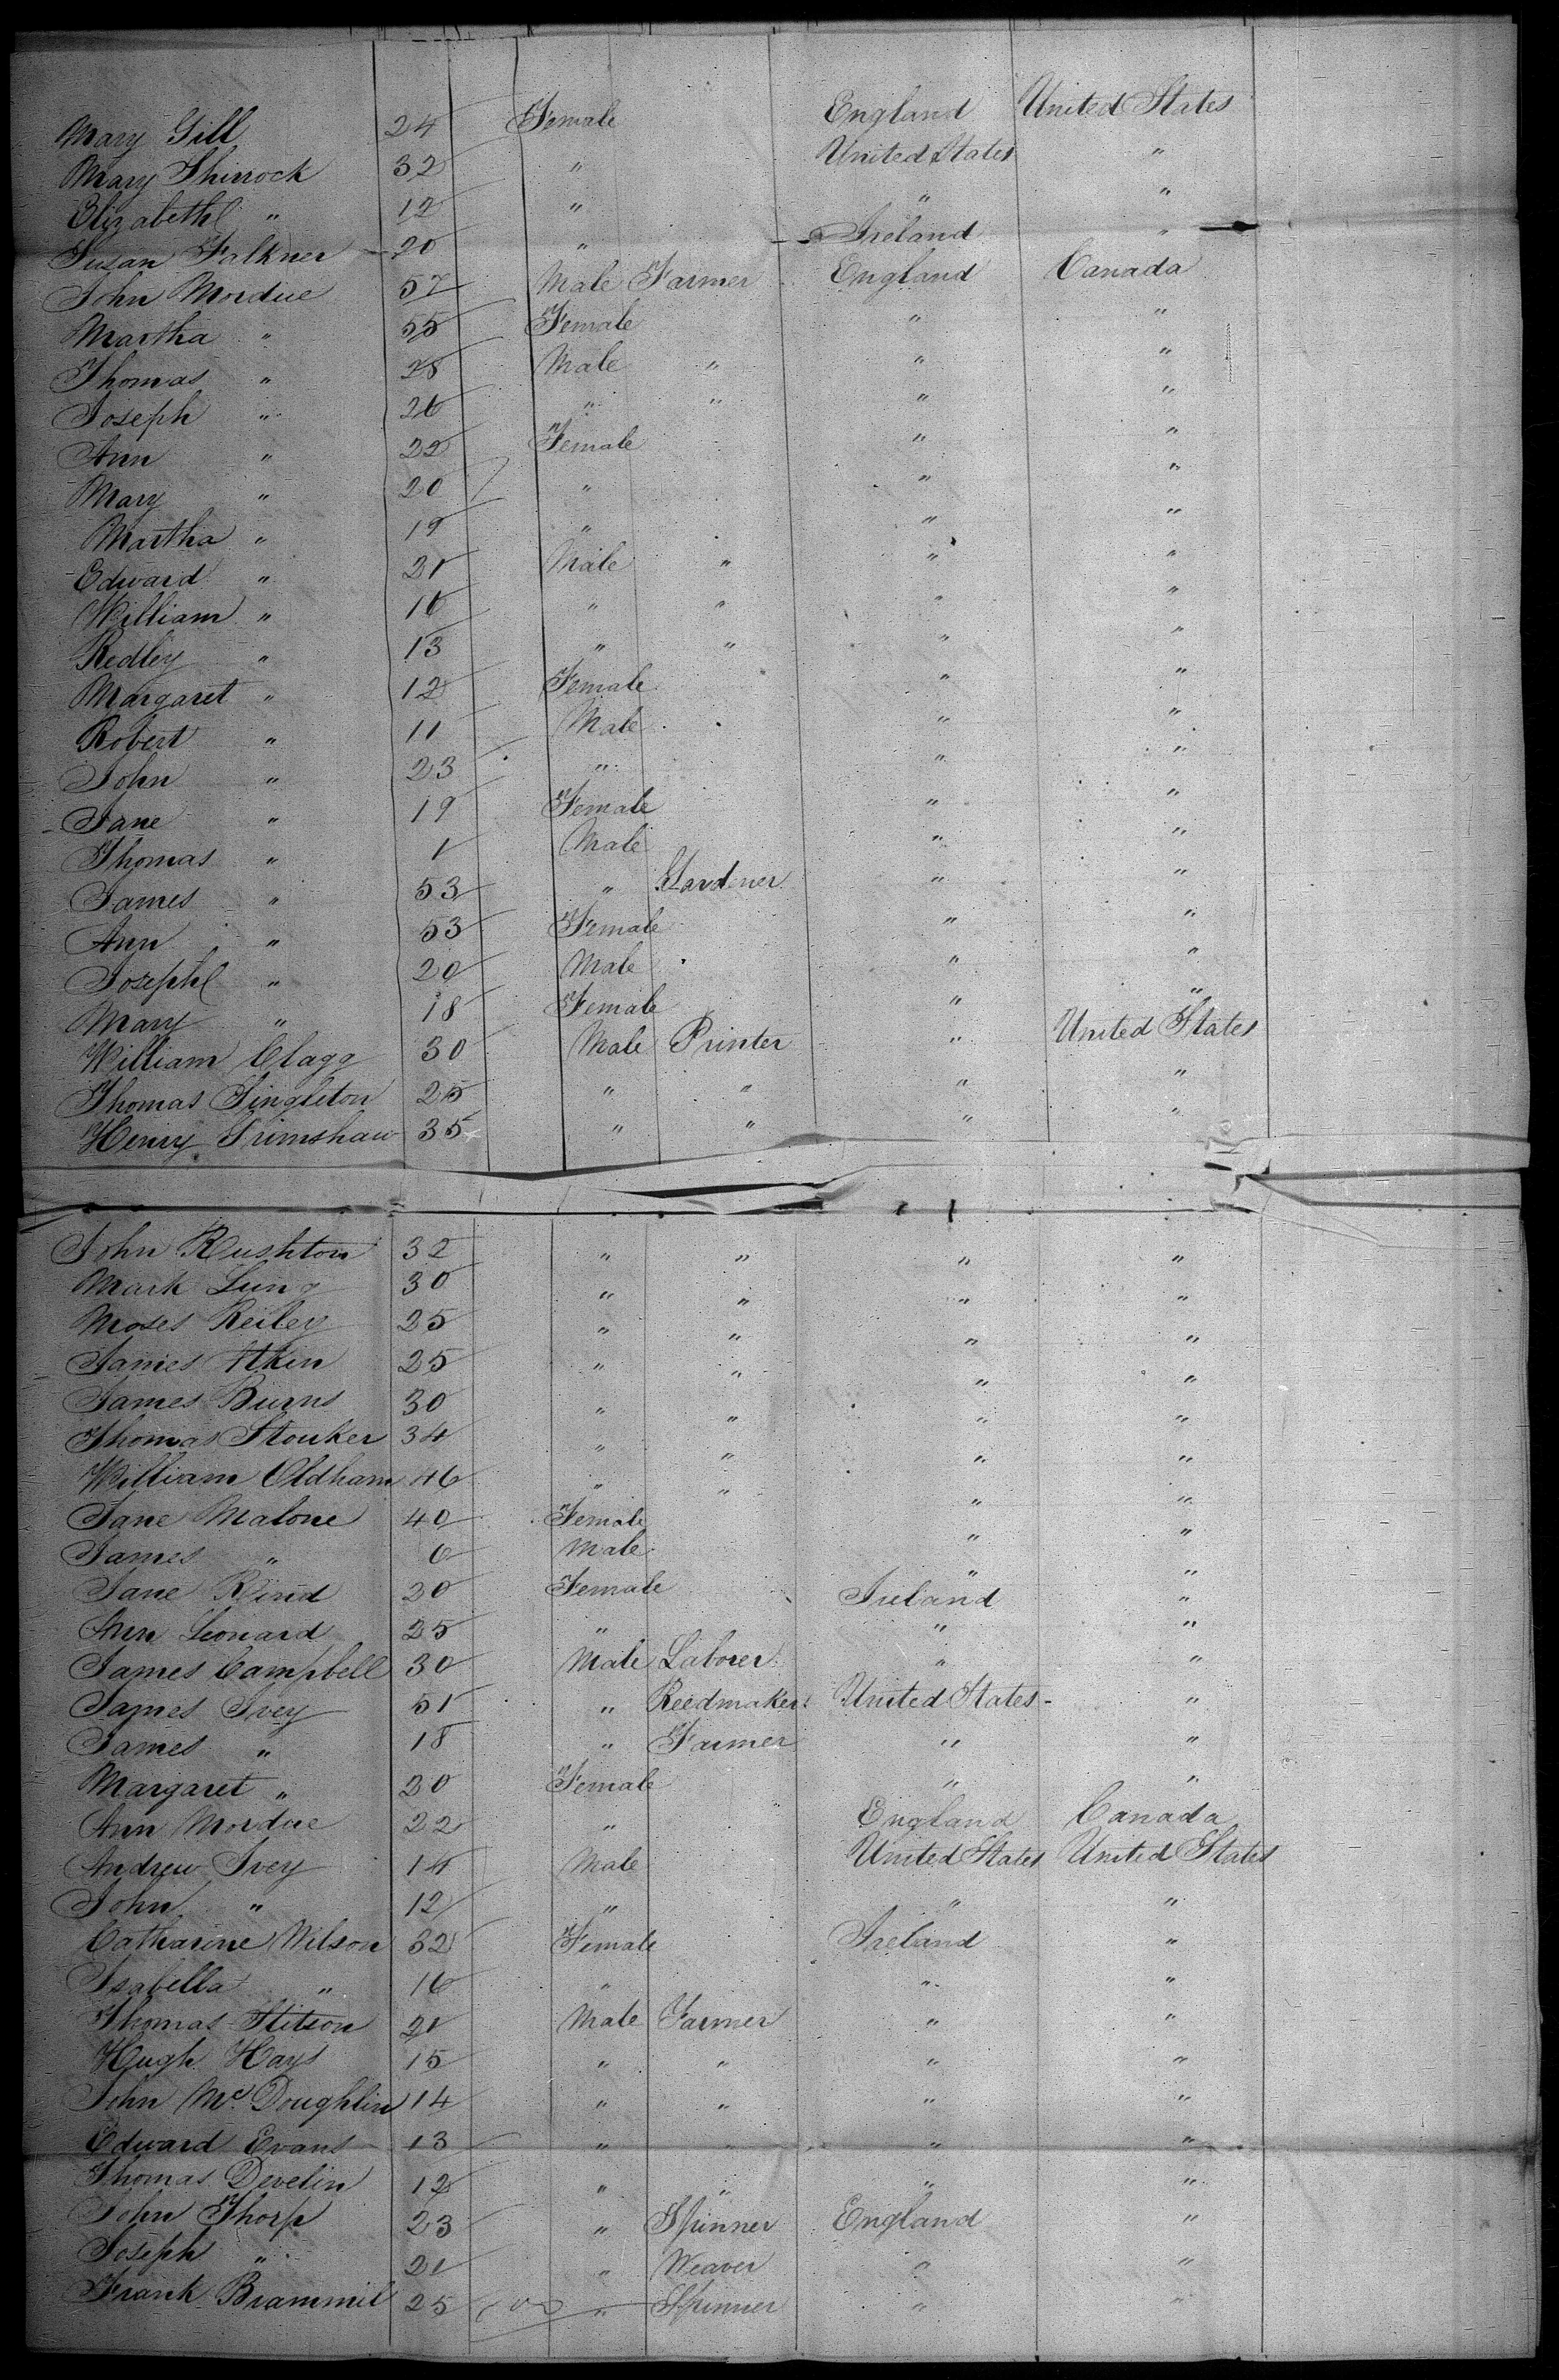 Mary Gill 24 Female England United States
Mary Shirrock 32 " United States "
Elizabeth " 12 " " "
Susan Falkner 20 " Ireland "
John Mordue 57 Male Farmer England Canada
Martha " 55 Female " "
Thomas " 28 Male " " "
Joseph " 26 " " " "
Ann " 22 Female " "
Mary " 20 " " "
Martha " 19 " " "
Edward " 21 Male " " "
William " 16 " " " "
Redley " 13 " " " "
Margaret " 12 Female " "
Robert " 11 Male " "
John " 23 " " "
Jane " 19 Female " "
Thomas " 1 Male " "
James " 53 " Gardner " "
Ann " 53 Female " "
Joseph " 20 Male " "
Mary " 18 Female " "
William Clagg 30 Male Printer " United States
Thomas Singleton 25 " " " "
Henry Grimshaw 35 " " " "
John Rushton 32 " " " "
Mark Lung 30 " " " "
Moses Reiley 25 " " " "
James Atken 25 " " " "
James Burns 30 " " " "
Thomas Stouker 34 " " " "
William Oldham 46 " " " "
Jane Malone 40 Female " "
James " 6 Male " "
Jane Rind 20 Female Ireland "
Ann Leonard 25 " " "
James Campbell 30 Male Laborer " "
James Ivey 51 " Reedmaker United States "
James " 18 " Farmer " "
Margaret " 20 Female " "
Ann Mordue 22 " England Canada
Andrew Ivey 14 Male United States United States
John " 12 " " "
Catharine Wilson 32 Female Ireland "
Isabella " 16 " " "
Thomas Stitson 21 Male Farmer " "
Hugh Hays 15 " " " "
John Mc Doughlin 14 " " " "
Edward Evans 13 " " " "
Thomas Develin 12 " " " "
John Thorp 23 " Spinner England "
Joseph " 21 " Weaver " "
Frank Brammil 25 " Spinner " "